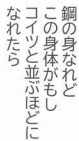 鋼の身なれど
この身体がもし
コイツと並ぶほどに
なれたら